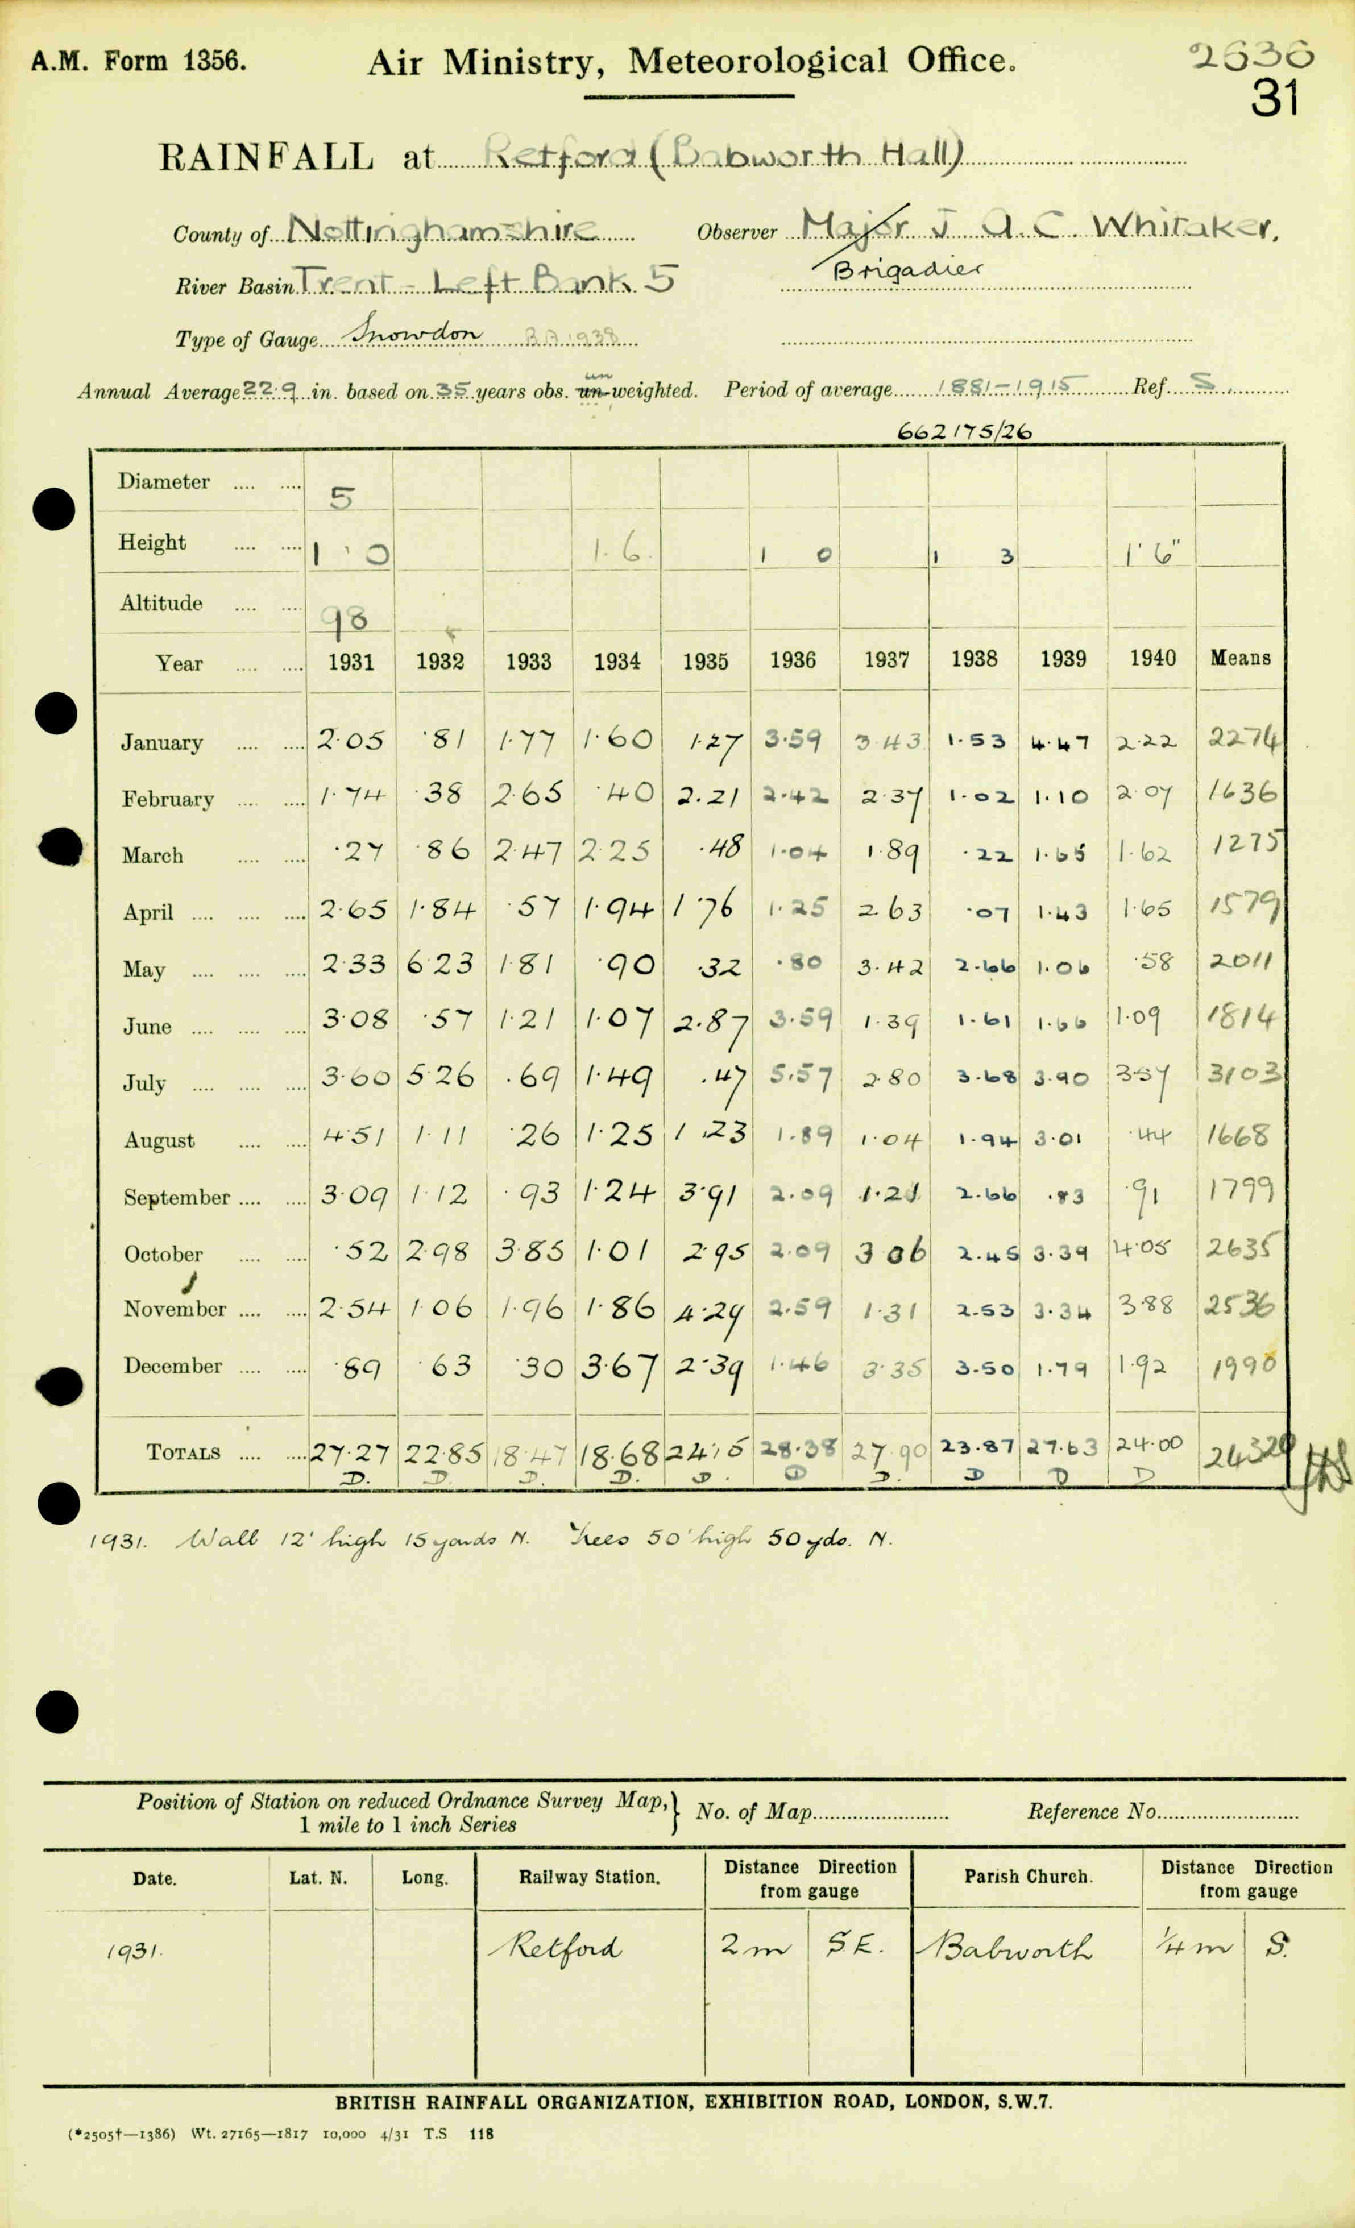 A.M. Form 1356. Air Ministry, Meteorological Office. 2636
31
RAINFALL at Retford (Babworth Hall)
County of Nottinghamshire Observer Major J A. C. Whitaker.
River Basin Trent - Left Bank 5 Brigadier
Type of Gauge Snowdon B.A. 1938
un
Annual Average 22.9 in. based on 35 years obs. un-weighted. Period of average 1881-1915 Ref. S.
662175/26
Diameter .... .... 5
Height .... .... 1' 0 1.6. 1 0 1 3 1' 6"
Altitude .... .... 98
Year .... .... 1931 1932 1933 1934 1935 1936 1937 1938 1939 1940 Means
January .... .... 2.05 .81 1.77 1.60 1.27 3.59 3.43 1.53 4.47 2.22 2274
February .... .... 1.74 .38 2.65 .40 2.21 2.42 2.37 1.02 1.10 2.07 1636
March .... .... .27 .86 2.47 2.25 .48 1.04 1.89 .22 1.65 1.62 1275
April .... .... .... 2.65 1.84 .57 1.94 1.76 1.25 2.63 .07 1.43 1.65 1579
May .... .... .... 2.33 6.23 1.81 .90 .32 .80 3.42 2.66 1.06 .58 2011
June .... .... .... 3.08 .57 1.21 1.07 2.87 3.59 1.39 1.61 1.66 1.09 1814
July .... .... .... 3.60 5.26 .69 1.49 .47 5.57 2.80 3.68 3.90 3.57 3103
August .... .... 4.51 1.11 .26 1.25 1.23 1.89 1.04 1.94 3.01 .44 1668
September .... .... 3.09 1.12 .93 1.24 3.91 2.09 1.21 2.66 .83 .91 1799
October .... .... .52 2.98 3.85 1.01 2.95 2.09 3.06 2.45 3.39 4.05 2635
November .... .... 2.54 1.06 1.96 1.86 4.29 2.59 1.31 2.53 3.34 3.88 2536
December .... .... .89 .63 .30 3.67 2.39 1.46 3.35 3.50 1.79 1.92 1990
TOTALS .... .... 27.27 22.85 18.47 18.68 24.15 28.38 27.90 23.87 27.63 24.00 24320
D. D. D. D. D. D D. D D D
1931. Wall 12' high 15 yards N. Trees 50' high 50 yds. N.
Position of Station on reduced Ordnance Survey Map,} No. of Map Reference No.
1 mile to 1 inch Series
Date. Lat. N. Long. Railway Station. Distance Direction Parish Church. Distance Direction
from gauge from gauge
1931. Retford 2 m S E. Babworth ¼ m S.
BRITISH RAINFALL ORGANIZATION, EXHIBITION ROAD, LONDON, S.W.7.
(*2505†—1386) Wt. 27165—1817 10,000 4/31 T.S 118